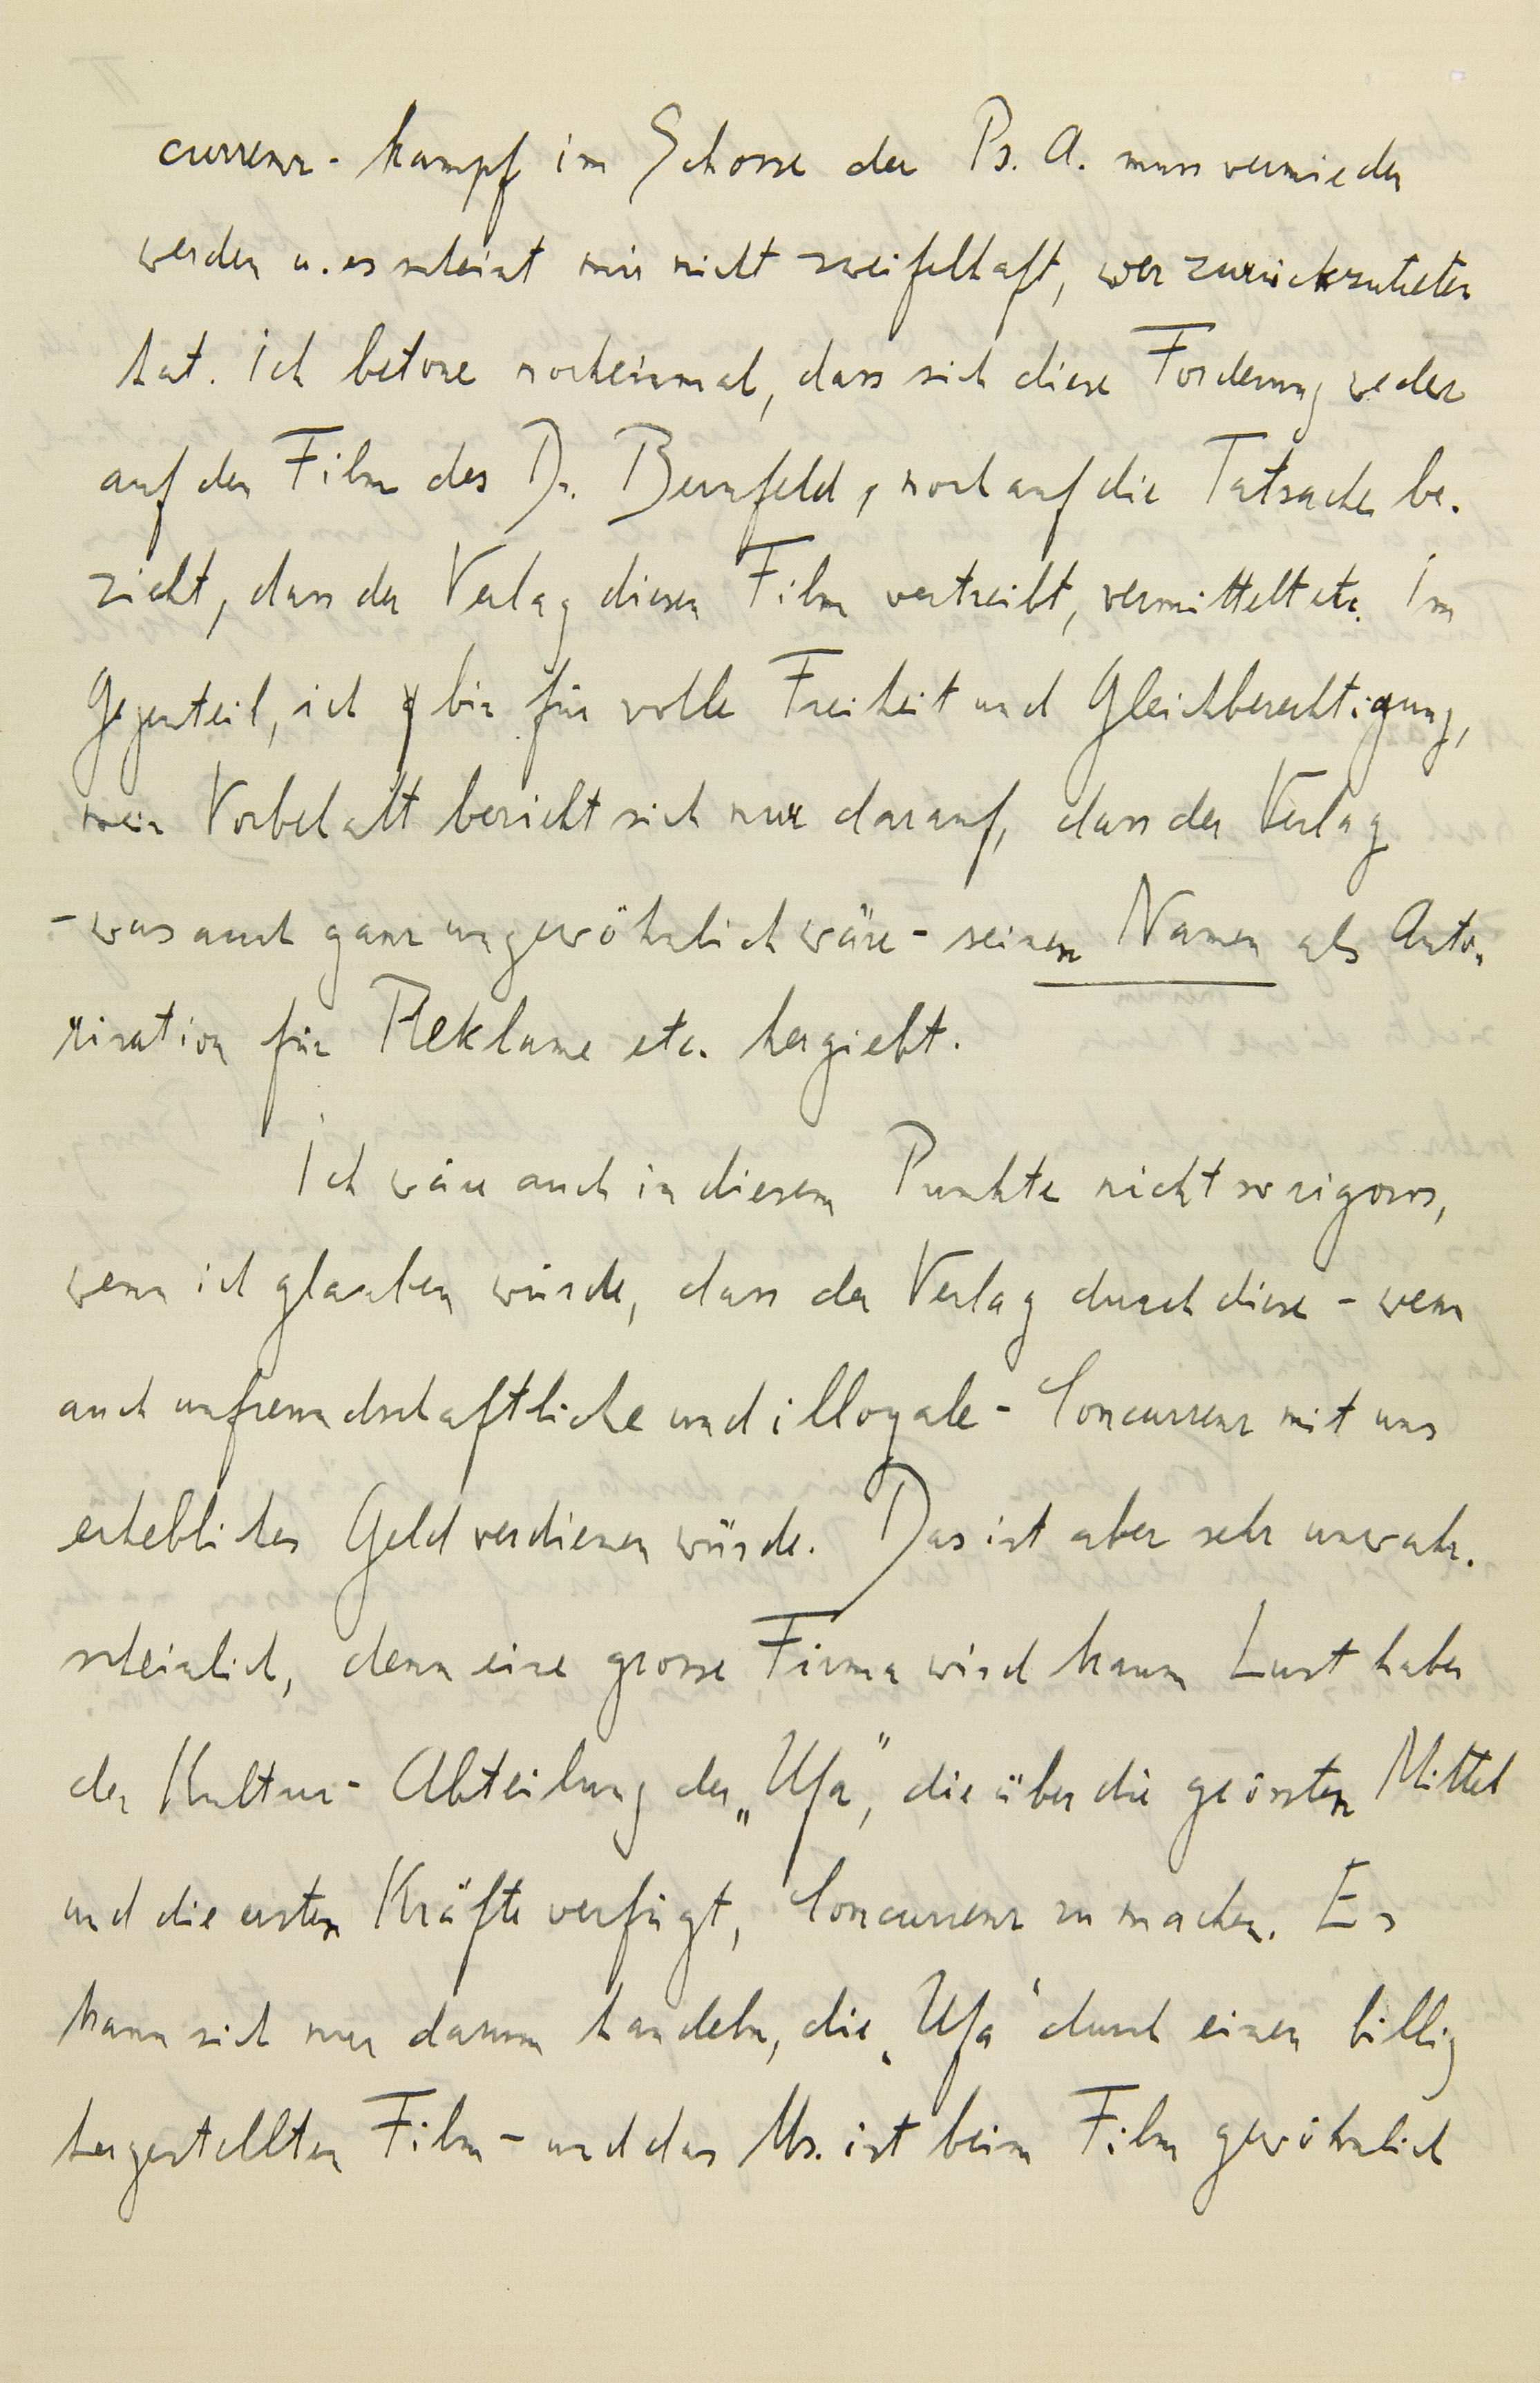 currenz-kampf im Schosse der Ps. A. muss vermieden
werden u. es scheint mir nicht zweifelhaft, wer zurückzutreten
hat. Ich betone nocheinmal, dass sich diese Forderung weder
auf den Film des Dr. Bernfeld, noch auf die Tatsache be-
zieht, dass der Verlag diesen Film vertreibt, vermittelt etc. Im
Gegenteil, ich bin für volle Freiheit und Gleichberechtigung,
mein Vorbehalt bezieht sich nur darauf, dass der Verlag
- was auch ganz ungewöhnlich wäre - seinen Namen als Auto-
risation für Reklame etc. hergiebt.
Ich wäre auch in diesem Punkte nicht so rigoros,
wenn ich glauben würde, dass der Verlag durch diese - wenn
auch unfreundschaftliche und illoyale - Concurrenz mit uns
erhebliches Geld verdienen würde. Das ist aber sehr unwahr-
scheinlich, denn eine grosse Firma wird kaum Lust haben
der Kultur-Abteilung der „Ufa", die über die grössten Mittel
und die ersten Kräfte verfügt, Concurrenz zu machen. Es
kann sich nur darum handeln, die „Ufa" durch einen billig
hergestellten Film - und das Ms. ist beim Film gewöhnlich